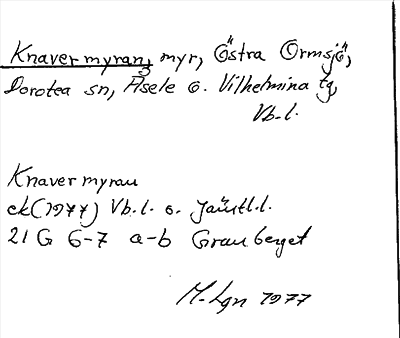 Knavermyran, myr, Östra Ormsjö,
Dorotea sn, Åsele o. Vilhelmina tg,
Vb.l.
Knavermyran
ek (1977) Vb.l. o. Jämtl.l.
21 G 6-7 a-b Granberget
M-Lgn 1977